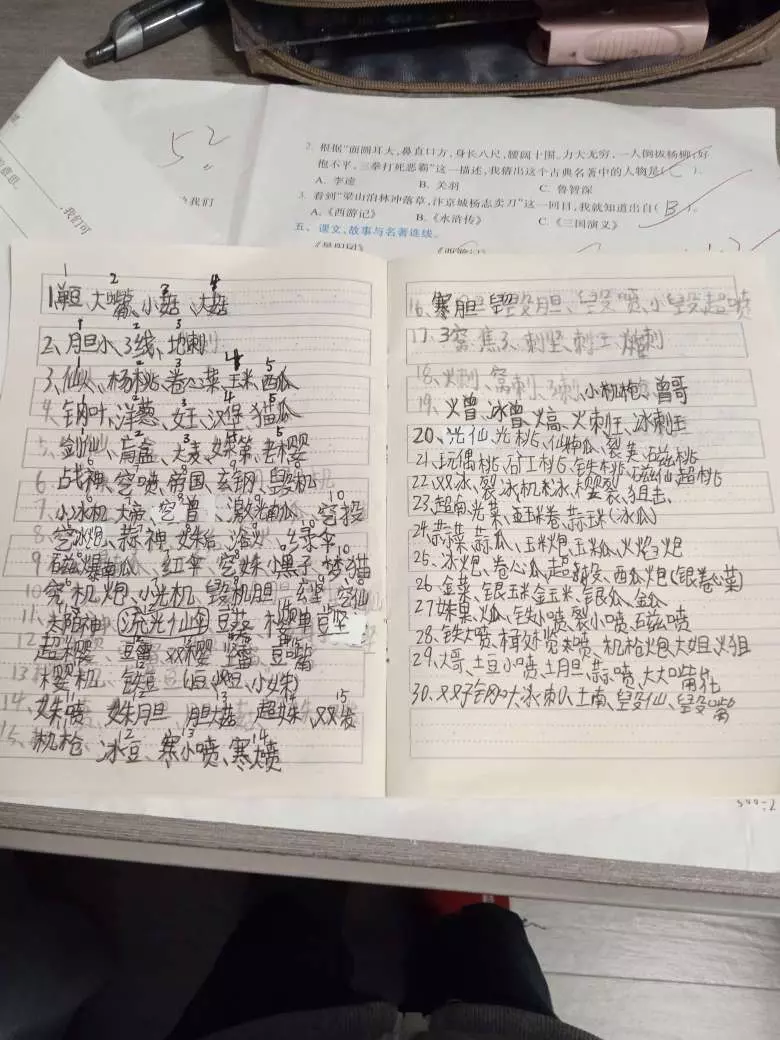 52
我们可
给我们
2. 根据“面圆耳大，鼻直口方，身长八尺，腰阔十围。力大无穷，一人倒拔杨柳；好
抱不平，三拳打死恶霸”这一描述，我猜出这个古典名著中的人物是(C)。
A. 李逵 B. 关羽 C. 鲁智深
3. 看到“梁山泊林冲落草，汴京城杨志卖刀”这一回目，我就知道出自(B)。
A.《西游记》 B.《水浒传》 C.《三国演义》
五、课文、故事与名著连线。
1 2 3 4
1.单豆、大嘴、小菇、大菇
1 2 3
2、月胆小、3线、地刺
3、仙人、杨桃、卷心菜、玉米、西瓜
4、钢叶、洋葱、女王、汉堡、猫瓜
5、剑仙、盲盒、大麦、妹第、老樱
6、战神、空喷、帝国、玄钢、毁机
7、小冰机、大帝、空曾、激光南瓜、空投
8、空冰炮、蒜神、妹后、浴火、绿伞
9、磁爆南瓜、红伞、空妹、小黑子、梦猫
10、突机炮、小光机、毁机胆、玄坚、空仙
11、太阳神、流光仙伞、豆荚、樱单、豆坚
12、超樱、豆雷、双樱、坚雷、豆嘴
13、樱机、铁豆(小豆、小妹)
14、妹喷、妹胆、胆大菇、超妹、双袋
15、机枪、冰豆、寒小喷、寒大喷
16、寒胆、毁胆、毁喷、小毁、超喷
17、3窝、焦3、刺坚、刺王
18、火刺、窝刺、3刺、小机枪、曾哥
19、火曾、冰曾、火高、火刺王、冰刺王
20、光仙、光桃、仙南瓜、裂荚、磁桃
21、玩偶桃、矿工桃、铁桃、磁仙、超桃
22、双冰、裂冰、机冰、樱裂、狙击、
23、超南、光菜、玉米卷、蒜玉米(冰瓜)
24、蒜菜、蒜瓜、玉米炮、玉米瓜、火焰3炮
25、冰炮、卷心瓜、超投、西瓜炮(银卷心菜)
26、金菜、银玉米、金玉米、银瓜、金瓜
27、妹果、火瓜、铁小喷、裂小喷、磁喷
28、铁大喷、机枪炮、大姐、火狙
29、大哥、土豆小喷、土胆、蒜喷、大大嘴花
30、双子钢叶、冰刺、土南、毁仙、毁嘴